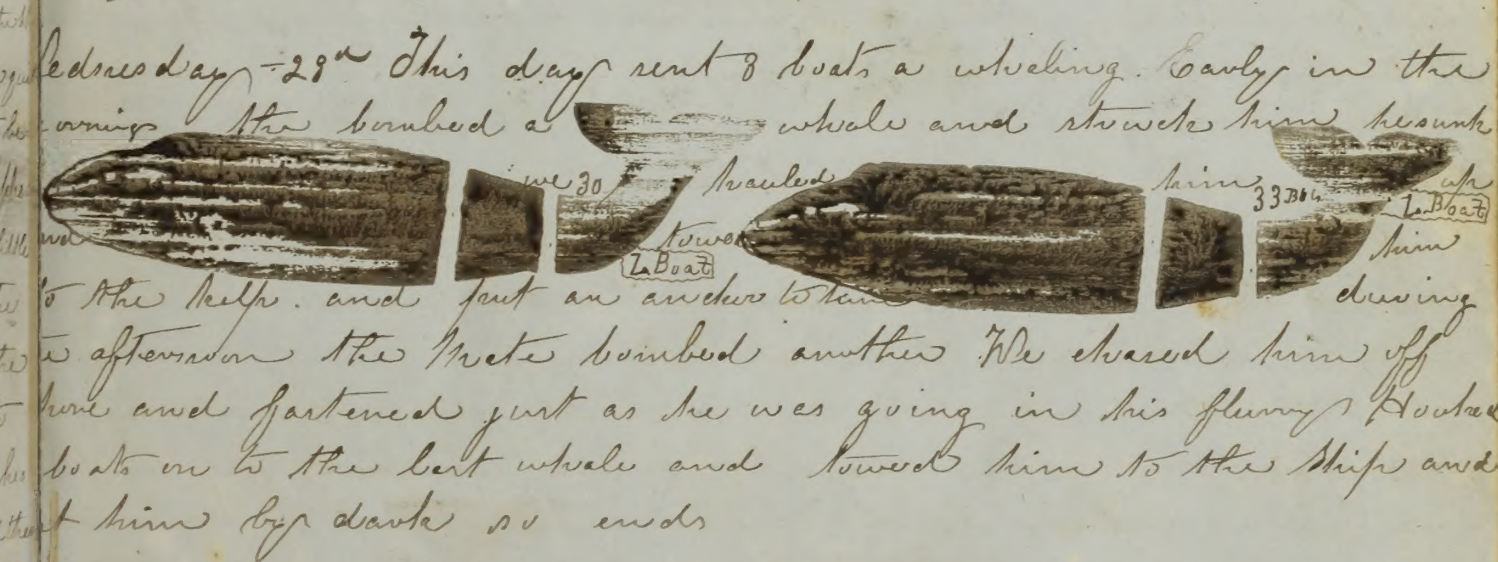 ednesday - 29th This day sent 3 boats a whaling. Early in the
orning the bombed a whale and struck him he sunk
we 30 hauled him 33 Bbls up
L. Boat
nd towed him
L. Boat
to the kelp. and put an anchor to him during
e afternoon the Mate bombed another We chased him off
hore and fastened just as he was going in his flurry Hooked
boats on to the last whale and towed him to the Ship and
t him by dark so ends